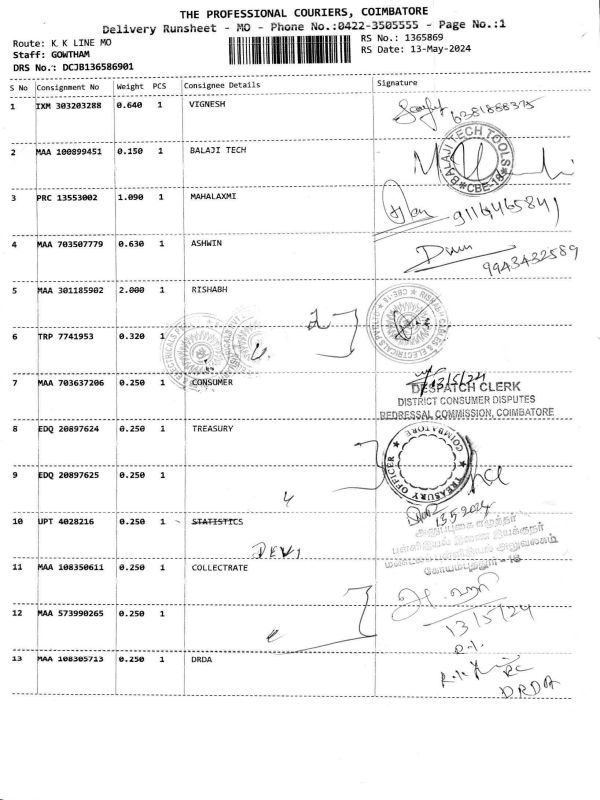 THE PROFESSIONAL COURIERS, COIMBATORE
Delivery Runsheet - MO - Phone No.:0422-3505555 - Page No.:1
Route: K. K LINE MO
RS No.: 1365869
Staff: GOWTHAM
RS Date: 13-May-2024
DRS No.: DCJB136586901
S No Consignment No Weight PCS Consignee Details Signature
1 IXM 303203288 0.640 1 VIGNESH
6381888375
2 MAA 100899451 0.150 1 BALAJI TECH
BALAJI TECH TOOLS
CBE-18
3 PRC 13553002 1.090 1 MAHALAXMI
9116465841
4 MAA 703507779 0.630 1 ASHWIN
9943432589
5 MAA 301185902 2.000 1 RISHABH
6 TRP 7741953 0.320 1
7 MAA 703637206 0.250 1 CONSUMER
13/5/24
DESPATCH CLERK
DISTRICT CONSUMER DISPUTES
REDRESSAL COMMISSION, COIMBATORE
8 EDQ 20897624 0.250 1 TREASURY
TREASURY OFFICER COIMBATORE
9 EDQ 20897625 0.250 1
10 UPT 4028216 0.250 1 STATISTICS
DEVI
11 MAA 108350611 0.250 1 COLLECTRATE
12 MAA 573990265 0.250 1
13/5/24
13 MAA 108305713 0.250 1 DRDA
DRDA